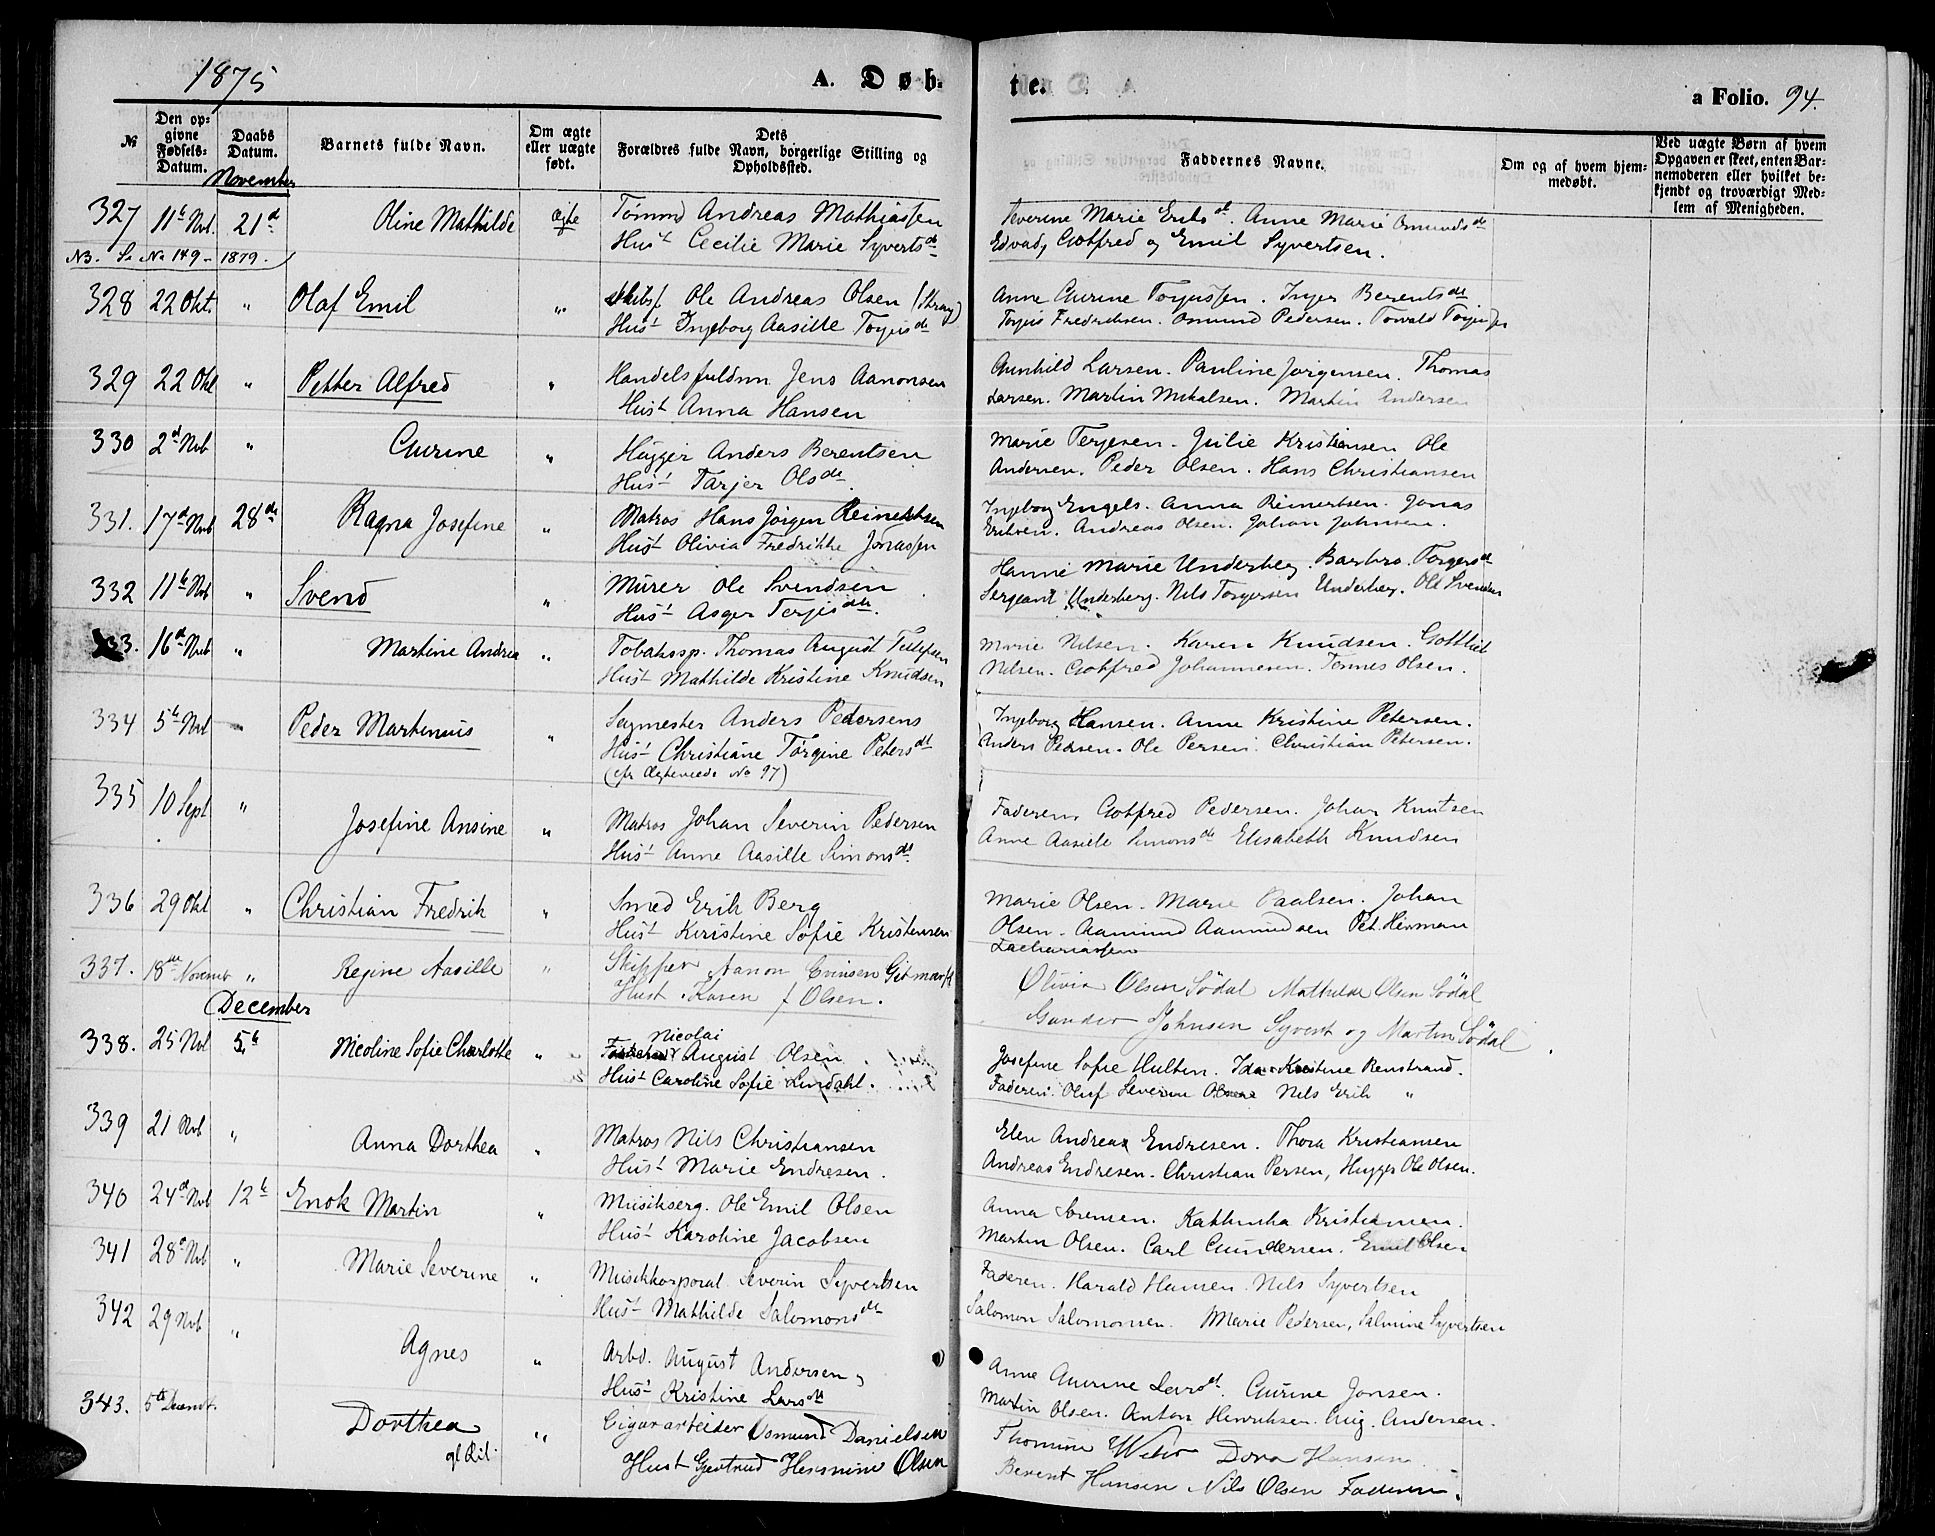 1875
A. Døb-
te.
a Folio. 94.
No
Den op-
givne
Fødsels-
Datum.
Daabs
Datum.
Barnets fulde Navn.
Om ægte
eller uægte
født.
Dets
Forældres fulde Navn, borgerlige Stilling og
Opholdssted.
Faddernes Navne.
Om og af hvem hjem-
medøbt.
Ved uægte Børn af hvem
Opgaven er skeet, enten Bar-
nemoderen eller hvilket be-
kjendt og troværdigt Med-
lem af Menigheden.
November
327 11te Nvb. 21de Oline Mathilde Ægte Tømmd Andreas Mathiassen
Hust Cecilie Marie Syvertsdt
Severine Marie Eriksdt. Anne Marie Osmundsdt
Edvard, Gotfred og Emil Syvertsen.
NB. Se No 149 - 1879.
328 22 Okt. " Olaf Emil " Ole Andreas Olsen
Hust Ingeborg Aasille Torjusdt
Anne Gurine Torjussen. Inger Berentsdt
Torjus Fredriksen. Osmund Pedersen. Torvald Torjussen
329 22 Okt " Petter Alfred " Handelsfuldm Jens Aanonsen
Hust Anna Hansen
Gunhild Larsen. Pauline Jørgensen. Thomas
Larsen. Martin Mikalsen. Martin Andersen
330 2d Nvb " Gurine " Hugger Anders Berentsen
Hust Tarjer Olsdt.
Marie Terjesen. Julie Kristiansen Ole
Andersen. Peder Olsen. Hans Christiansen
331. 17d Nvb 28de Ragna Josefine " Matros Hans Jørgen Reinertsen
Hust Olivia Fredrikke Jonassen
Ingeborg Engels. Anna Reinertsen. Jonas
Eriksen. Andreas Olsen. Johan Johnsen.
332 11te Nvb " Svend " Murer Ole Svendsen
Hust Asger Terjesdt.
Hanne Marie Underberg. Barbro Torgersdt
Sergeant Underberg. Nils Torgersen Underberg. Ole Svendsen
333. 16d Nvb " Martine Andrea " Tobaksp. Thomas August Tellefsen
Hust Mathilde Kristine Knudsen
Marie Nilsen. Karen Knudsen. Gottlieb
Nilsen. Gotfred Johannesen. Tønnes Olsen.
334 5te Nvb " Peder Martinius " Sagmester Anders Pedersens
Hust Christiane Tørgine Petersdt
(cfr Ægteviede No 97)
Ingeborg Hansen. Anne Kristine Petersen.
Anders Pedersen. Ole Persen. Christian Petersen.
335 10 Sept " Josefine Ansine " Matros Johan Severin Pedersen
Hust Anne Aasille Simonsdt.
Faderen, Gotfred Pedersen. Johan Knutsen
Anne Aasille Simonsdt Elisabeth Knudsen
336 29 Okt " Christian Fredrik " Smed Erik Berg
Hust Kirstine Sofie Kristensen
Marie Olsen. Marie Paalsen. Johan
Olsen. Aamund Aamundsen Pet. Herman
Zachariassen
337. 18de Novemb " Regine Aasille " Skipper Aanon Gitmark
Hust. Karen f Olsen.
Olivia Olsen Södal Mathilde Olsen Södal
Gunder Johnsen Syvert og Martin Södal
December
338. 25 Nvb 5te Nicoline Sofie Charlotte " Nicolai
August Olsen
Hust Caroline Sofie Lindahl.
Josefine Sofie Hulten. Ida Kristine Renstrand.
Faderen. Oluf Severin Olsen Nils Erik "
339 21 Nvb " Anna Dorthea " Matros Nils Christiansen
Hust Marie Endresen.
Elen Andrea Endresen. Thora Kristiansen
Andreas Endresen. Christian Persen, Hugger Ole Olsen.
340 24d Nvb 12te Enok Martin " Musikserg. Ole Emil Olsen
Hust Karoline Jacobsen
Anna Sørensen. Kathinka Kristiansen.
Martin Olsen. Carl Gundersen. Emil Olsen
341 28d Nvb " Marie Severine " Musikkorporal Severin Syvertsen
Hust Mathilde Salomonsdt
Faderen. Harald Hansen. Nils Syvertsen
Salomon Salomonsen. Marie Pedersen, Salmine Syvertsen
342 29 Nvb " Agnes " Arbd. August Andersen,
Hust Kristine Larsdt
Anne Gurine Larsdt. Gurine Jonsen.
Martin Olsen. Anton Henriksen. Aug. Andersen.
343. 5te Decembr. Dorthea " Cigararbeider Osmund Danielsen
Hust Gjertrud Hermine Olsen
Thomine Dora Hansen
Berent Hansen Nils Olsen Faderen.